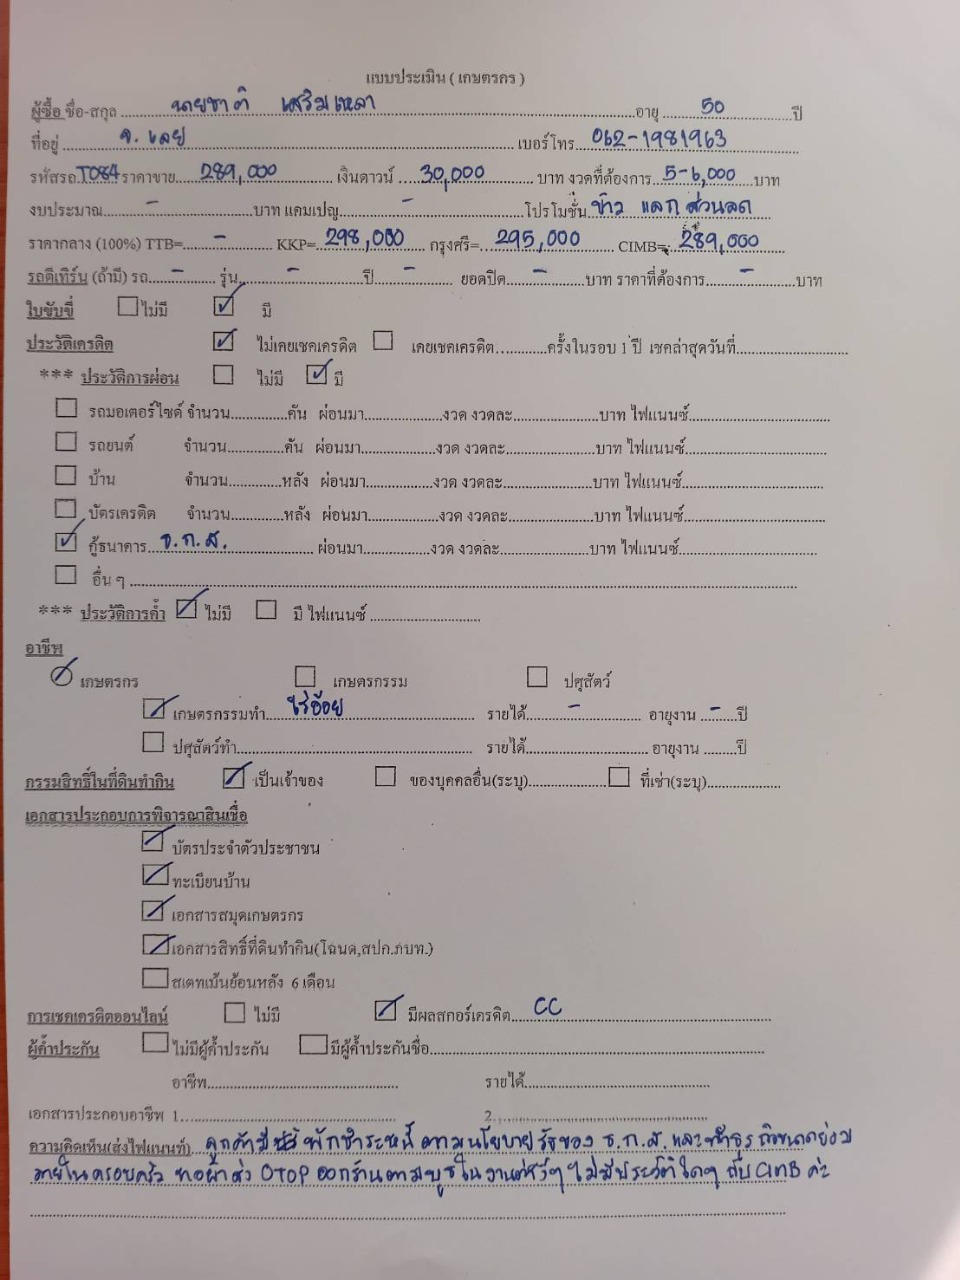 แบบประเมิน ( เกษตรกร )
ผู้ซื้อ ชื่อ-สกุล นายชาติ เสริมเหลา อายุ 50 ปี
ที่อยู่ จ. เลย เบอร์โทร 062-1981963
รหัสรถ T084 ราคาขาย 289,000 เงินดาวน์ 30,000 บาท งวดที่ต้องการ 5-6,000 บาท
งบประมาณ - บาท แคมเปญ - โปรโมชั่น ข้าว แลก ส่วนลด
ราคากลาง (100%) TTB= - KKP= 298,000 กรุงศรี= 295,000 CIMB= 289,000
รถตีเทิร์น (ถ้ามี) รถ - รุ่น - ปี - ยอดปิด - บาท ราคาที่ต้องการ - บาท
ใบขับขี่ ไม่มี มี
ประวัติเครดิต ไม่เคยเชคเครดิต เคยเชคเครดิต ครั้งในรอบ 1 ปี เชคล่าสุดวันที่
*** ประวัติการผ่อน ไม่มี มี
รถมอเตอร์ไซด์ จำนวน คัน ผ่อนมา งวด งวดละ บาท ไฟแนนซ์
รถยนต์ จำนวน คัน ผ่อนมา งวด งวดละ บาท ไฟแนนซ์
บ้าน จำนวน หลัง ผ่อนมา งวด งวดละ บาท ไฟแนนซ์
บัตรเครดิต จำนวน หลัง ผ่อนมา งวด งวดละ บาท ไฟแนนซ์
กู้ธนาคาร ธ.ก.ส. ผ่อนมา งวด งวดละ บาท ไฟแนนซ์
อื่น ๆ
*** ประวัติการค้ำ ไม่มี มี ไฟแนนซ์
อาชีพ
เกษตรกร เกษตรกรรม ปศุสัตว์
เกษตรกรรมทำ ไร่อ้อย รายได้ - อายุงาน - ปี
ปศุสัตว์ทำ รายได้ อายุงาน ปี
กรรมสิทธิ์ในที่ดินทำกิน เป็นเจ้าของ ของบุคคลอื่น(ระบุ) ที่เช่า(ระบุ)
เอกสารประกอบการพิจารณาสินเชื่อ
บัตรประจำตัวประชาชน
ทะเบียนบ้าน
เอกสารสมุดเกษตรกร
เอกสารสิทธิ์ที่ดินทำกิน(โฉนด,สปก.ภบท.)
สเตทเม้นย้อนหลัง 6 เดือน
การเชคเครดิตออนไลน์ ไม่มี มีผลสกอร์เครดิต CC
ผู้ค้ำประกัน ไม่มีผู้ค้ำประกัน มีผู้ค้ำประกันชื่อ
อาชีพ รายได้
เอกสารประกอบอาชีพ 1. 2.
ความคิดเห็น(ส่งไฟแนนท์) ลูกค้ามี พักชำระหนี้ ตามนโยบายรัฐของ ธ.ก.ส. และทำธุรกิจขนาดย่อม
ภายในครอบครัว ทอผ้าส่ง OTOP ออกร้านตามบูธในงานต่างๆ ไม่มีประวัติใดๆ กับ CIMB ค่ะ